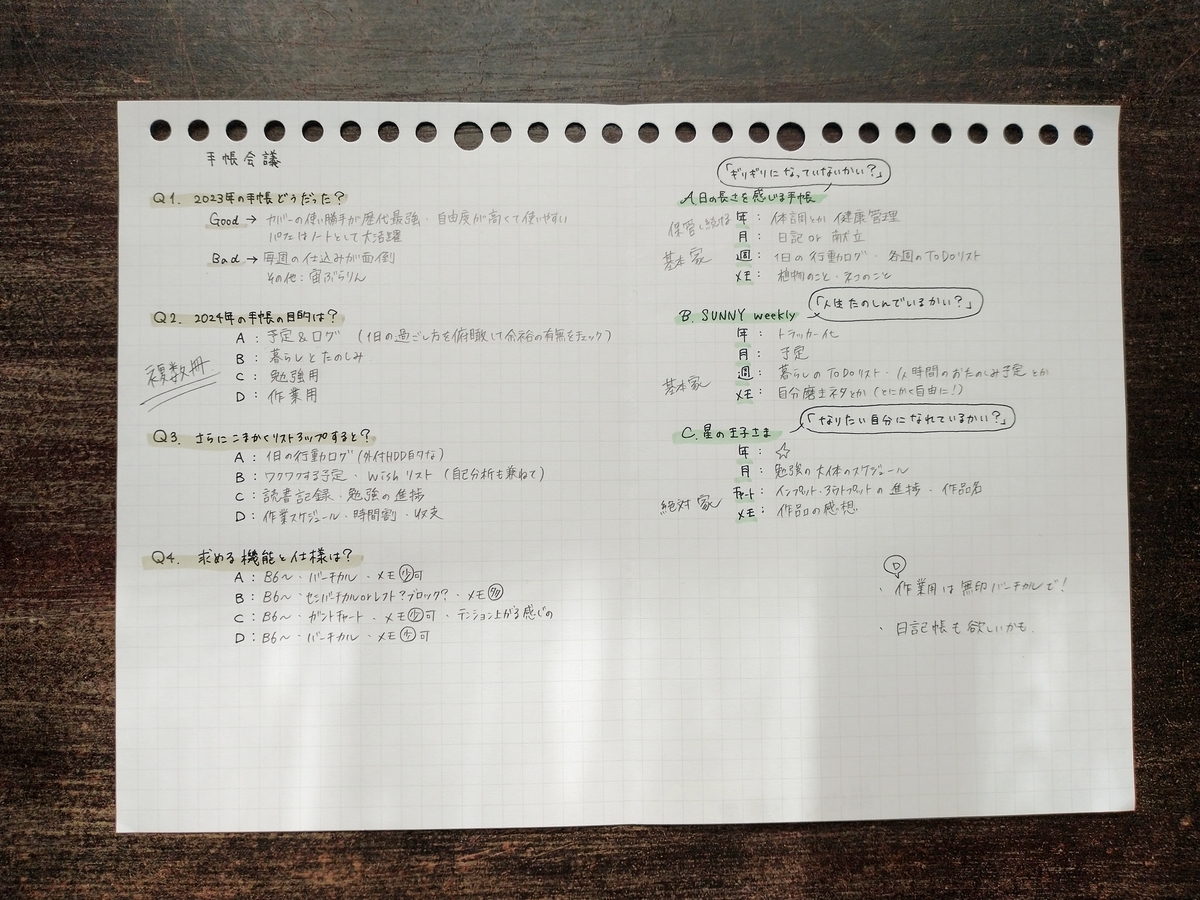 手帳会議
Q1. 2023年の手帳どうだった？
Good → カバーの使い勝手が歴代最強・自由度が高くて使いやすい
パタはノートとして大活躍
Bad → 毎週の仕込みが面倒
その他：宙ぶらりん
Q2. 2024年の手帳の目的は？
A：予定＆ログ（1日の過ごし方を俯瞰して余裕の有無をチェック）
B：暮らしとたのしみ
複数冊
C：勉強用
D：作業用
Q3. さらにこまかくリストアップすると？
A：1日の行動ログ（外付HDD的な）
B：ワクワクする予定・Wishリスト（自己分析も兼ねて）
C：読書記録・勉強の進捗
D：作業スケジュール・時間割・収支
Q4. 求める機能と仕様は？
A：B6〜・バーチカル・メモ少可
B：B6〜・センバーチカルorレフト？ブロック？・メモ多
C：B6〜・ガントチャート・メモ少可・テンション上がる感じの
D：B6〜・バーチカル・メモ可
「ギリギリになっていないかい？」
A.日の長さを感じる手帳
保管し続ける
年：体調とか健康管理
月：日記or献立
基本家
週：1日の行動ログ・各週のToDoリスト
メモ：植物のこと・ネコのこと
「人生たのしんでいるかい？」
B. SUNNY weekly
年：トラッカー化
月：予定
基本家
週：暮らしのToDoリスト・1人時間のおたのしみ予定とか
メモ：自分磨きネタとか（とにかく自由に！）
「なりたい自分になれているかい？」
C.星の王子さま
年：☆
月：勉強の大体のスケジュール
絶対家
チャート：インプット・アウトプットの進捗・作品名
メモ：作品の感想
D
・作業用は無印バーチカルで！
・日記帳も欲しいかも。